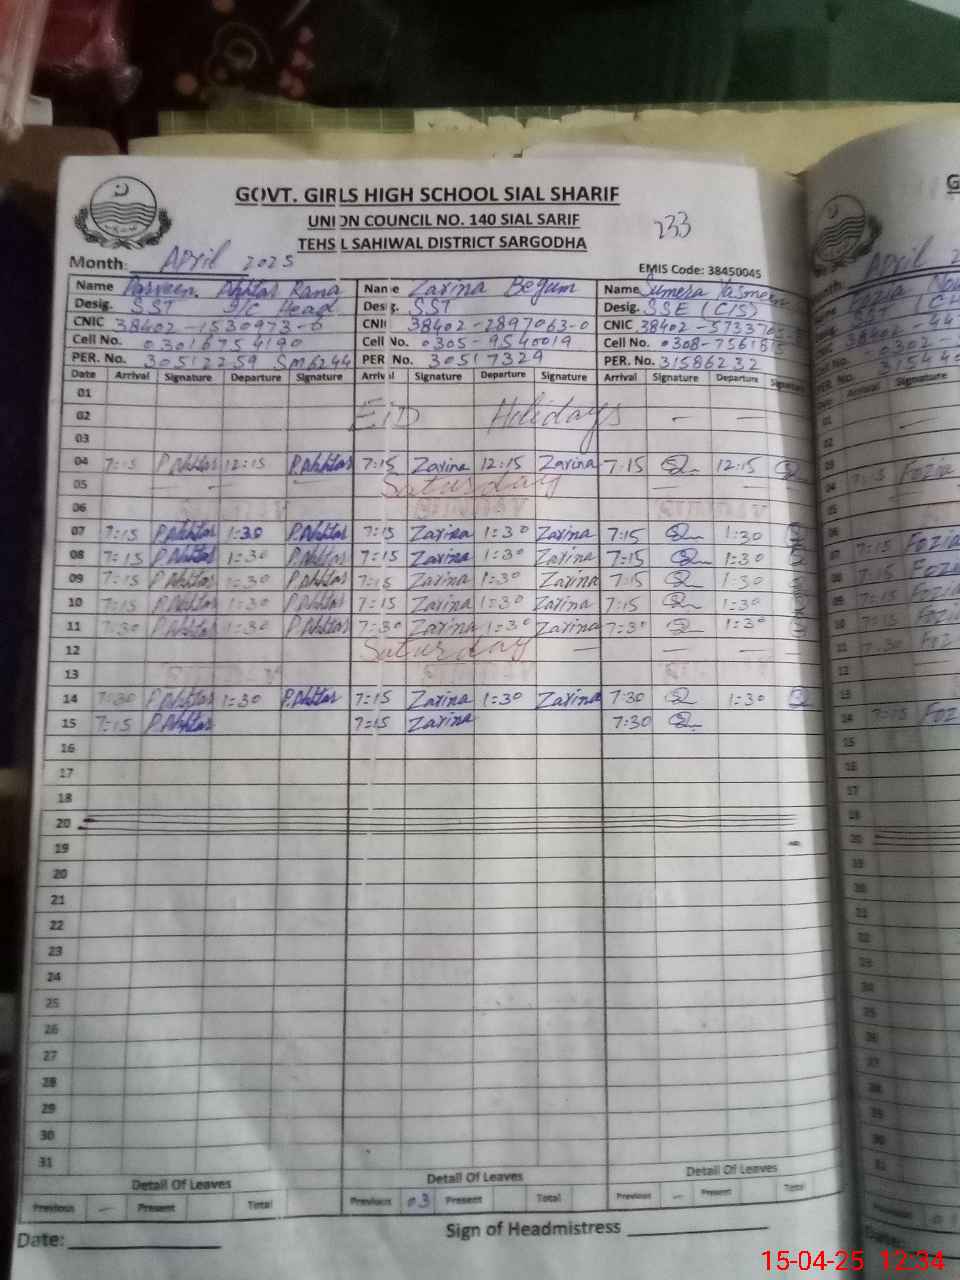 GOVT. GIRLS HIGH SCHOOL SIAL SHARIF
UNION COUNCIL NO. 140 SIAL SARIF
TEHSIL SAHIWAL DISTRICT SARGODHA
233
Month: April 2025
EMIS Code: 38450045
Name Parveen Akhtar Rana Name Zarina Begum Name Sumera Yasmeen
Desig. SST I/C Head Desig. SST Desig. SSE (CIS)
CNIC 38402-1530973-6 CNIC 38402-2897063-0 CNIC 38402-57337
Cell No. 03016754190 Cell No. 0305-9540019 Cell No. 0308-75618
PER. No. 30512259 PER No. 30517329 PER. No. 31586232
Date Arrival Signature Departure Signature Arrival Signature Departure Signature Arrival Signature Departure Signature
01
02 EiD Holidays — —
03
04 7:15 P.Akhtar 12:15 P.Akhtar 7:15 Zarina 12:15 Zarina 7:15 12:15
05 — — Saturday
06 SUNDAY SUNDAY SUNDAY
07 7:15 P.Akhtar 1:30 P.Akhtar 7:15 Zarina 1:30 Zarina 7:15 1:30
08 7:15 P.Akhtar 1:30 P.Akhtar 7:15 Zarina 1:30 Zarina 7:15 1:30
09 7:15 P.Akhtar 1:30 P.Akhtar 7:15 Zarina 1:30 Zarina 7:15 1:30
10 7:15 P.Akhtar 1:30 P.Akhtar 7:15 Zarina 1:30 Zarina 7:15 1:30
11 7:30 P.Akhtar 1:30 P.Akhtar 7:30 Zarina 1:30 Zarina 7:30 1:30
12 Saturday — — — —
13 SUNDAY SUNDAY SUNDAY
14 7:30 P.Akhtar 1:30 P.Akhtar 7:15 Zarina 1:30 Zarina 7:30 1:30
15 7:15 P.Akhtar 7:15 Zarina 7:30
16
17
18
20
19
20
21
22
23
24
25
26
27
28
29
30
31
Detail Of Leaves Detail Of Leaves Detail Of Leaves
Previous — Present Total Previous 03 Present Total Previous — Present Total
Date: Sign of Headmistress
15-04-25 12:34